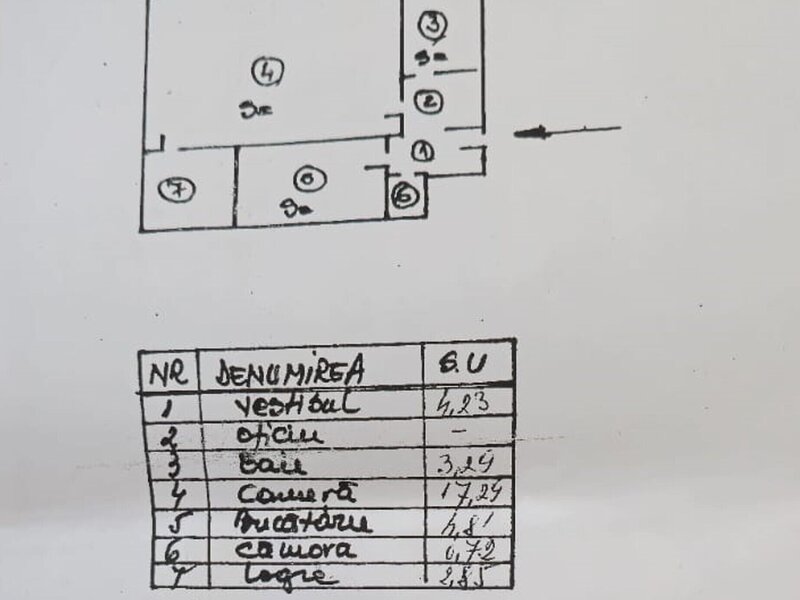 3
S=
4
2
S=
1
7
6
S=
6
NR DENUMIREA S.U
1 vestibul 4,23
2 oficiu -
3 baie 3,29
4 Cameră 17,29
5 Bucătărie 4,81
6 camora 0,72
7 logie 2,85